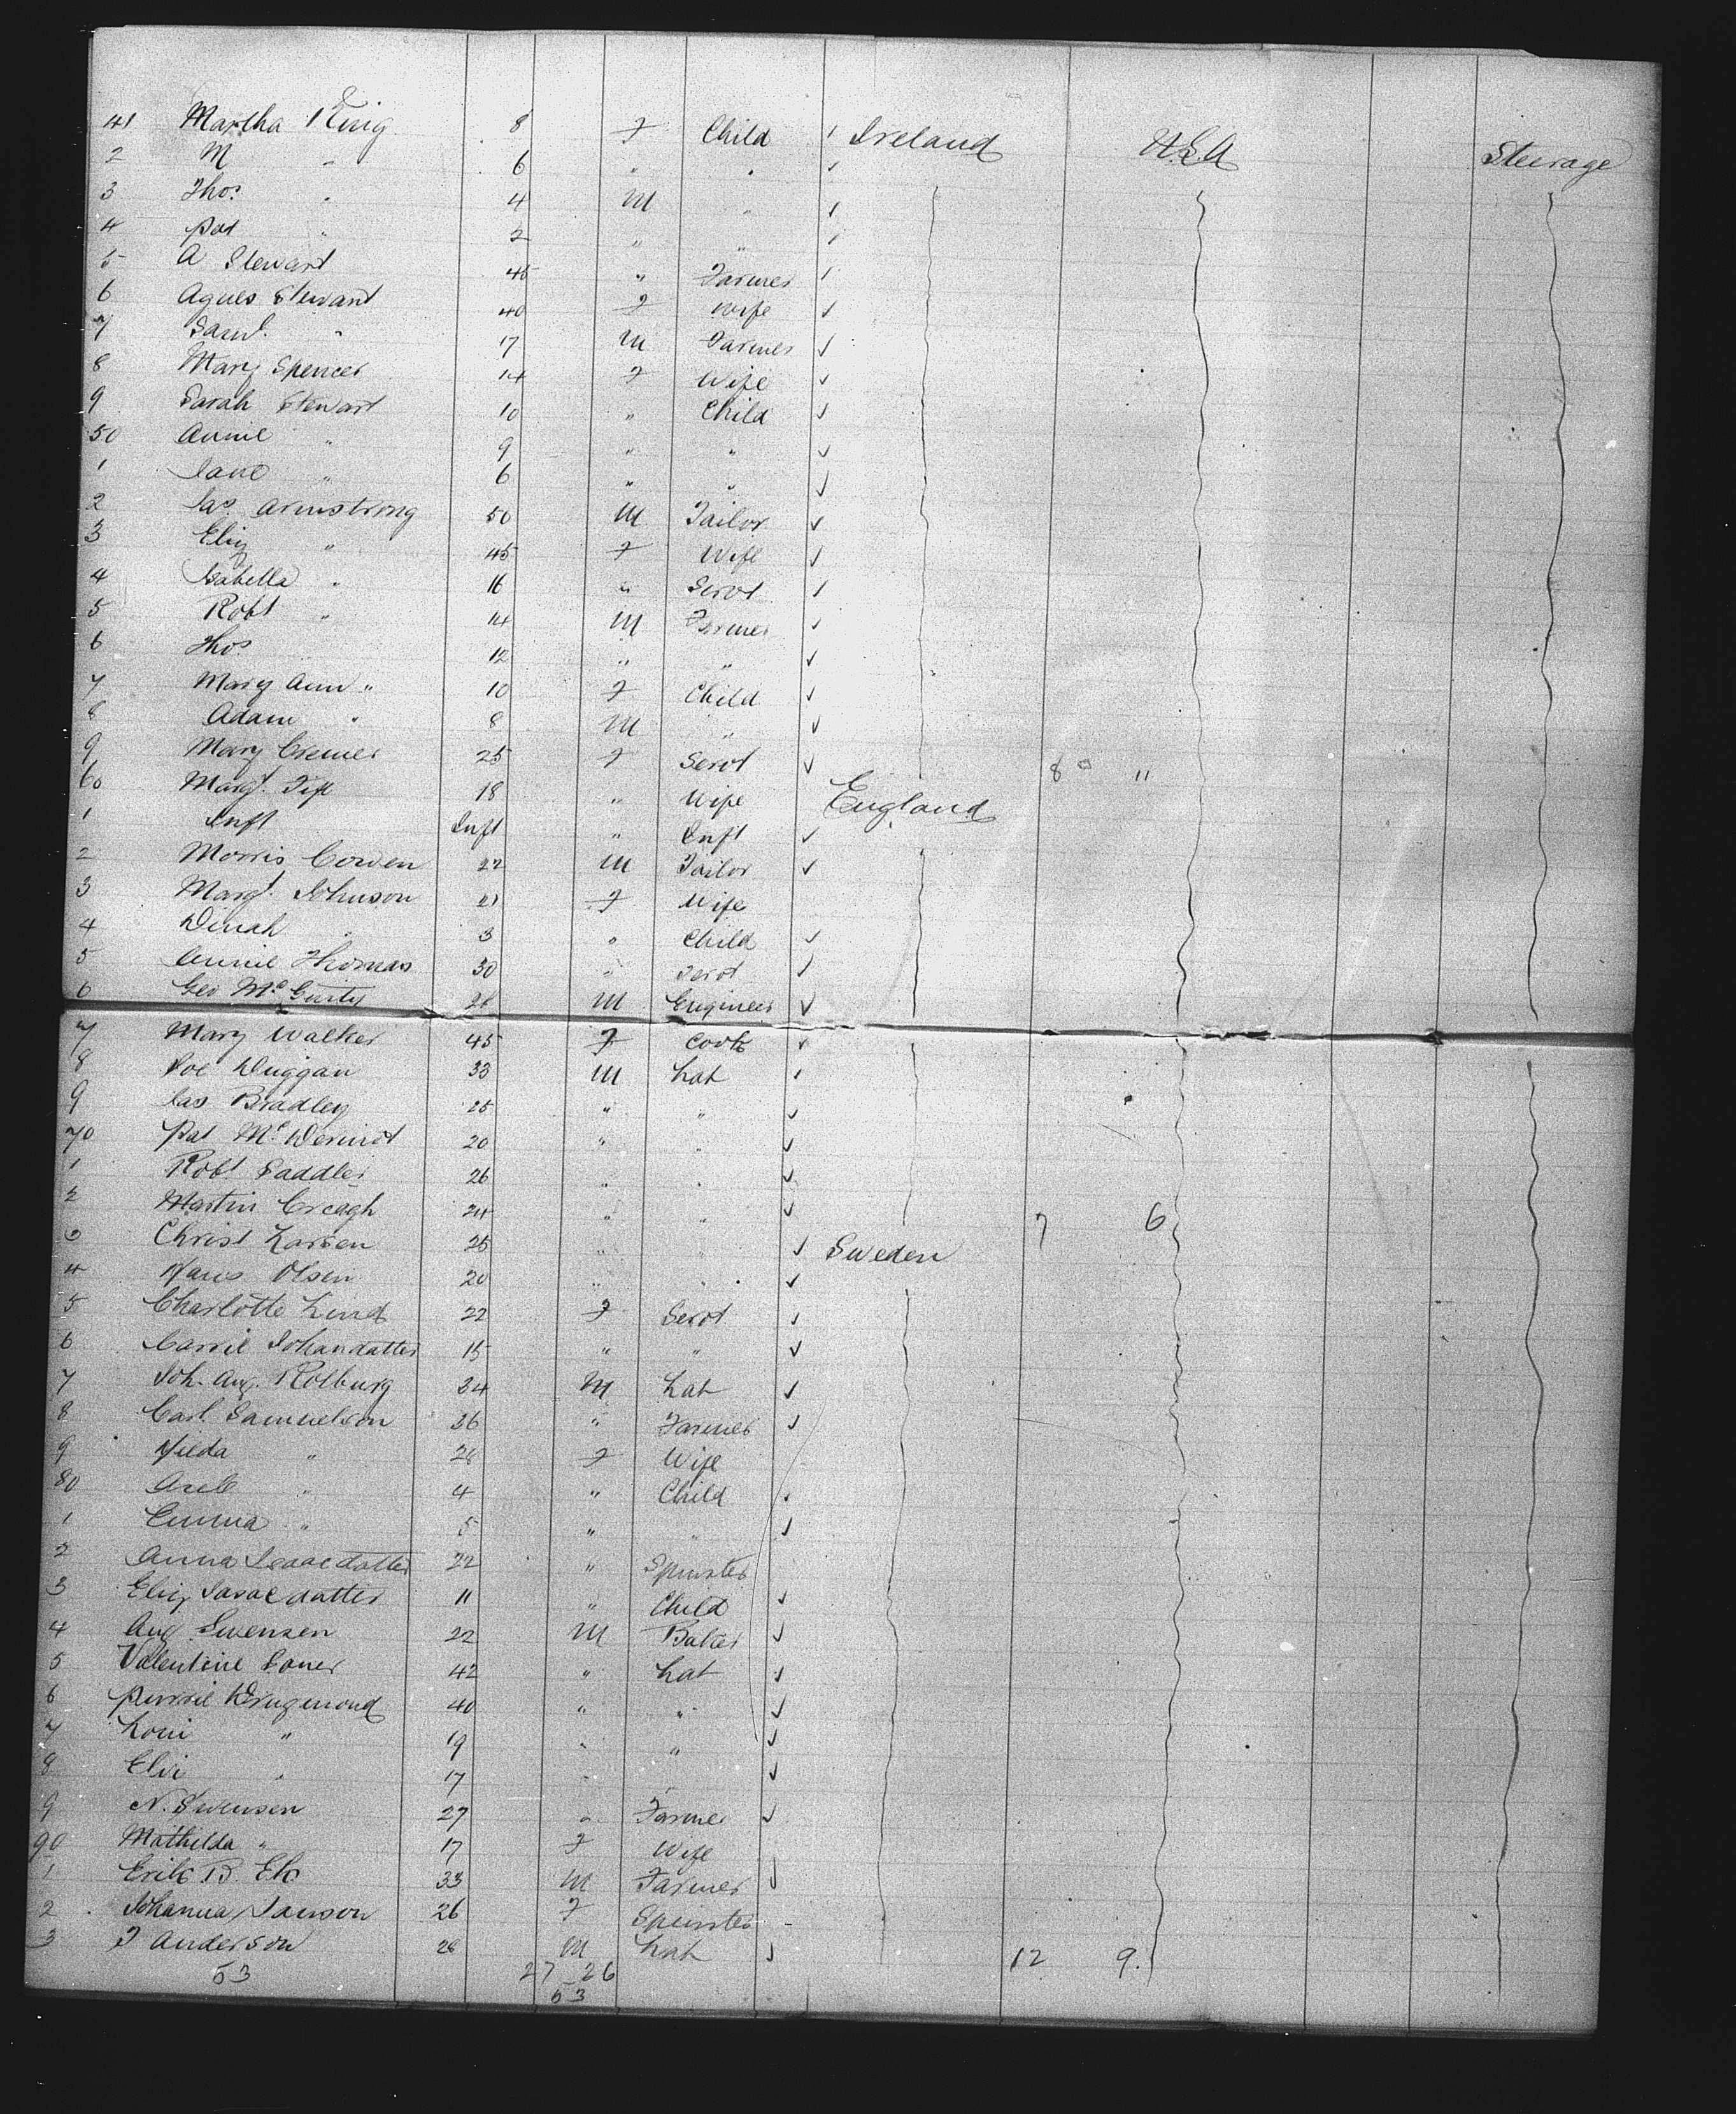 41 Martha King 8 F Child ✓ Ireland U.S.A Steerage
2 M " 6 " " ✓
3 Thos. " 4 M " ✓
4 Pat " 2 " " ✓
5 A Stewart 45 " Farmer ✓
6 Agnes Stewart 40 F Wife ✓
7 Saml. " 17 M Farmer ✓
8 Mary Spencer 14 F Wife ✓
9 Sarah Stewart 10 " Child ✓
50 Annie " 9 " " ✓
1 Jane " 6 " " ✓
2 Jas. Armstrong 50 M Tailor ✓
3 Eliz " 45 F Wife ✓
4 Isabella " 16 " Servt ✓
5 Robt " 14 M Farmer ✓
6 Thos 12 " " ✓
7 Mary Ann " 10 F Child ✓
8 Adam " 8 M " ✓
9 Mary Cremer 25 F Servt ✓ 8 "
60 Margt. 18 " Wife England
1 Inft Inft " Inft ✓
2 Morris Cowen 22 M Tailor ✓
3 Margt. Johnson 21 F Wife
4 Dinah " 3 " Child ✓
5 Annie Thomas 30 " Servt ✓
6 Geo Mc 28 M Engineer ✓
7 Mary Walker 45 F Cook ✓
8 Joe Duggan 33 M Lab ✓
9 Jas Bradley 25 " " ✓
70 Pat Mc Dermot 20 " " ✓
1 Robt Saddler 26 " " ✓
2 Martin Creagh 24 " " ✓ 7 6
3 Christ Larsen 25 " " ✓ Sweden
4 Hans Olsen 20 " " ✓
5 Charlotte Lind 22 F Servt ✓
6 Carrie Johandatter 15 " " ✓
7 Joh. Aug. Kolburg 24 M Lab ✓
8 Carl Samuelson 26 " Farmer ✓
9 Hilda " 28 F Wife
80 " 4 " Child ✓
1 Emma " 5 " " ✓
2 Anna Isaacdatter 22 " Spinster
3 Eliz Isaacdatter 11 " Child ✓
4 Aug Swensen 22 M Baker ✓
5 Valentine 42 " Lab ✓
6 40 " " ✓
7 " 19 " " ✓
8 " 17 " " ✓
9 N. Swensen 27 " Farmer ✓
90 Mathilda " 17 F Wife
1 Erik B. Ek 33 M Farmer ✓
2 Johanna 26 F Spinster
3 J Anderson 28 M Lab ✓ 12 9.
53 27 26
53